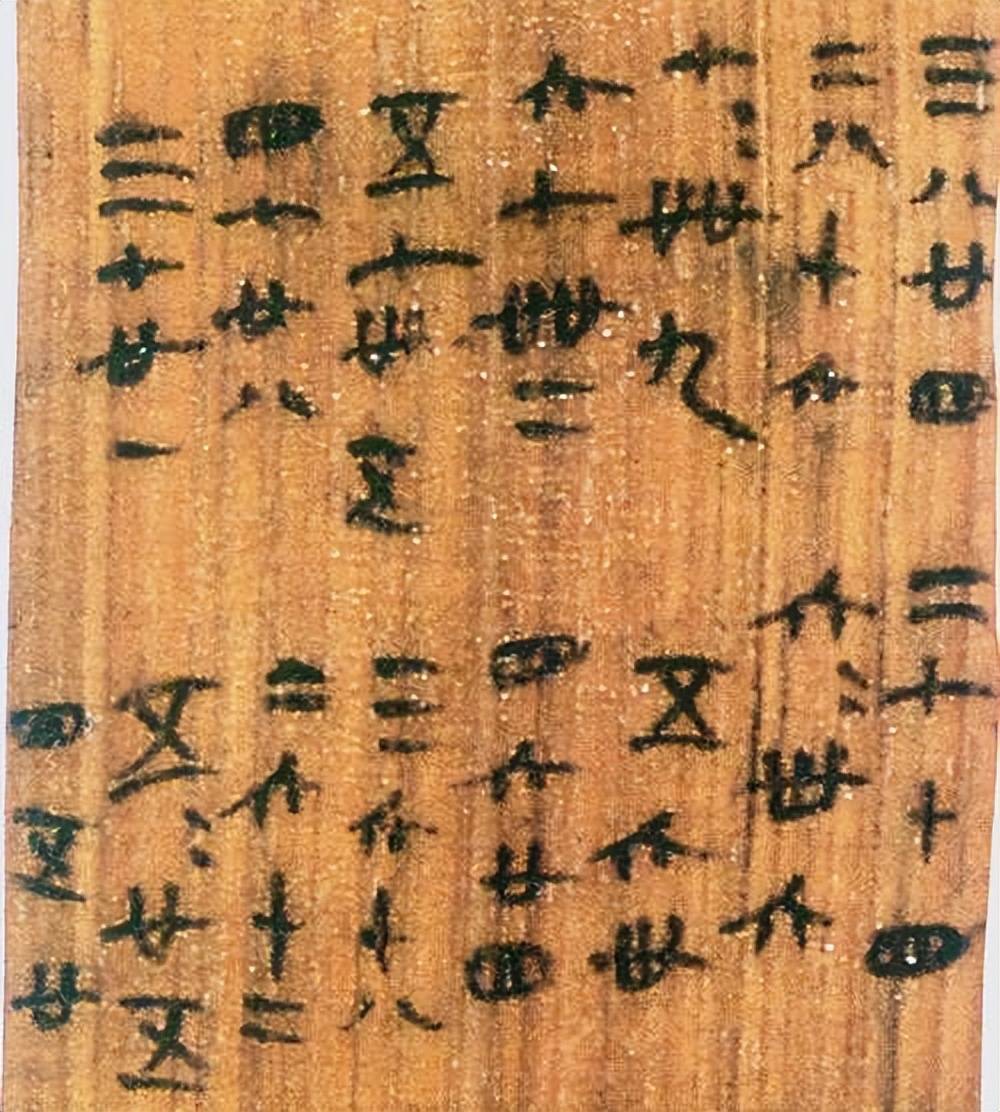 三八廿四
二八十六
七=卌九
六七卌二
五七卅五
四七廿八
三七廿一
二七十四
六=卅六
五六卅
四六廿四
三六十八
二六十二
五=廿五
四五廿